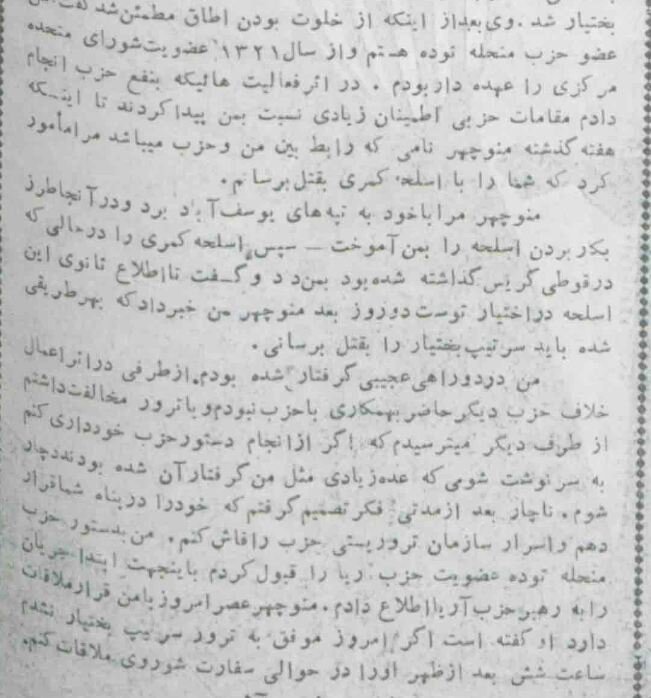 بختیار شد. وی بعداز اینکه از خلوت بودن اطاق مطمئن شد گفت
عضو حزب منحله توده هستم واز سال ۱۳۲۱ عضویت شورای متحده
مرکزی را عهده دار بودم . در اثر فعالیت هائیکه بنفع حزب انجام
دادم مقامات حزبی اطمینان زیادی نسبت بمن پیدا کردند تا اینکه
هفته گذشته منوچهر نامی که رابط بین من وحزب میباشد مرا مأمور
کرد که شما را با اسلحه کمری بقتل برسانم.
منوچهر مرا باخود به تپه های یوسف آباد برد ودر آنجا طرز
بکار بردن اسلحه را بمن آموخت ـ سپس اسلحه کمری را در حالی که
در قوطی گریس گذاشته شده بود بمن داد و گفت تا اطلاع ثانوی این
اسلحه در اختیار توست دوروز بعد منوچهر بمن خبر داد که بهر طریقی
شده باید سرتیپ بختیار را بقتل برسانی.
من در دوراهی عجیبی گرفتار شده بودم. از طرفی در اثر اعمال
خلاف حزب دیگر حاضر بهمکاری باحزب نبودم و با ترور مخالفت داشتم
از طرف دیگر میترسیدم که اگر از انجام دستور حزب خودداری کنم
به سرنوشت شومی که عده زیادی مثل من گرفتار آن شده بودند دچار
شوم. ناچار بعد از مدتی فکر تصمیم گرفتم که خودرا در پناه شما قرار
دهم واسرار سازمان تروریستی حزب را فاش کنم. من بدستور حزب
منحله توده عضویت حزب آریا را قبول کردم باینجهت ابتدا جریان
را به رهبر حزب آریا اطلاع دادم. منوچهر عصر امروز با من قرار ملاقات
دارد او گفته است اگر امروز موفق به ترور سرتیپ بختیار نشدم
ساعت شش بعد از ظهر اورا در حوالی سفارت شوروی ملاقات کنم.